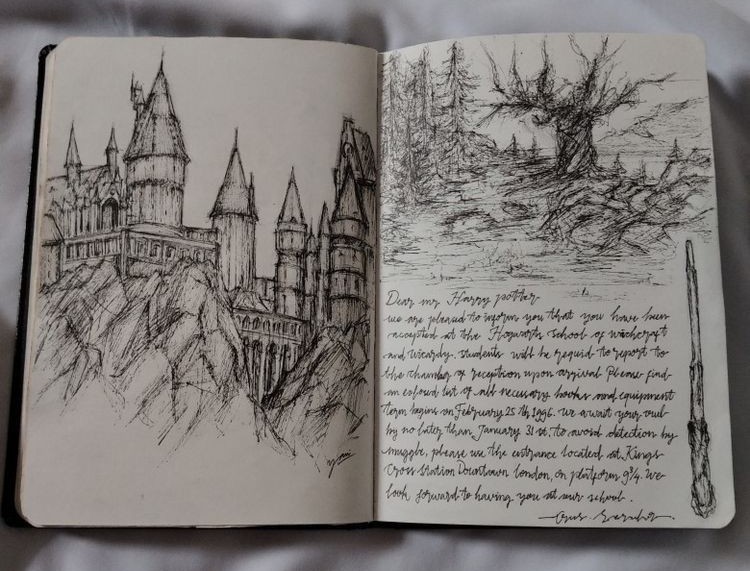 Dear mr Harry potter
we are pleased to inform you that you have been
accepted at the Hogwarts School of witchcraft
and wizardy. students will be requid to report to
the chamber of reception upon arrival Please find
in coloud list of all necessary books and equipment
term begins on February 25 th 1996. we await your owl
by no later than January 31 st, to avoid detection by
muggle, please use the entrance located at Kings
Cross Station Downtown london, on platform 9¾. we
look forward to having you at our school.